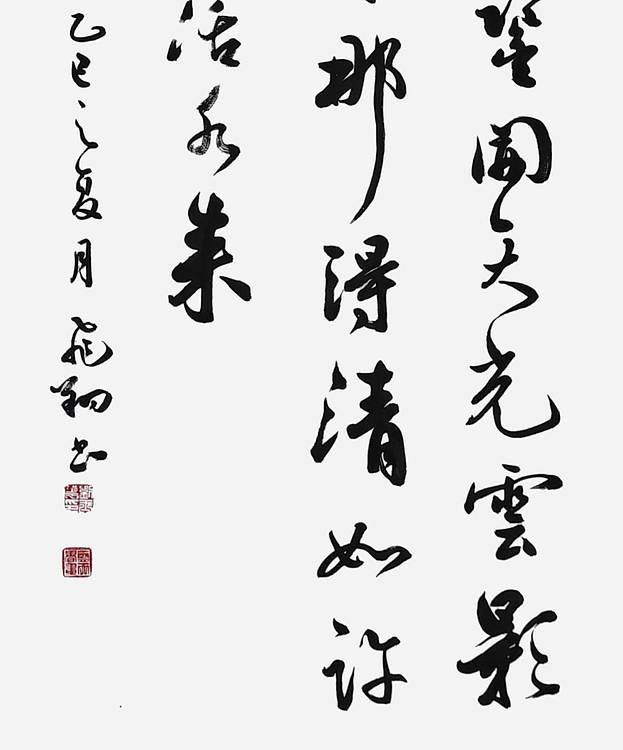 鑒開天光雲影
那得清如許
活水来
乙巳之夏月 飛翔書